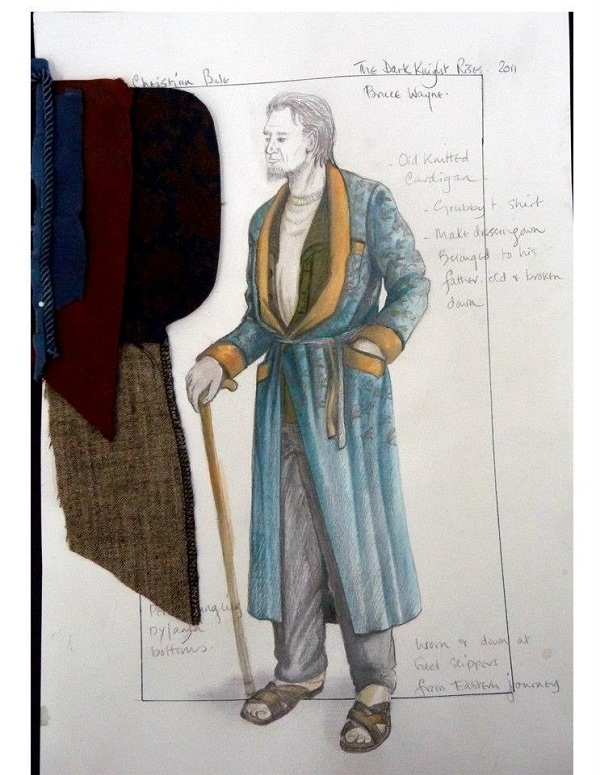 Christian Bale
The Dark Knight Rises. 2011
Bruce Wayne.
- Old Knitted
Cardigan
- Grubby t shirt
- Make dressing own
Belonged to his
father. old & broken
down
pyjama
bottoms.
Worn & down at
heel slippers
from Eastern journey